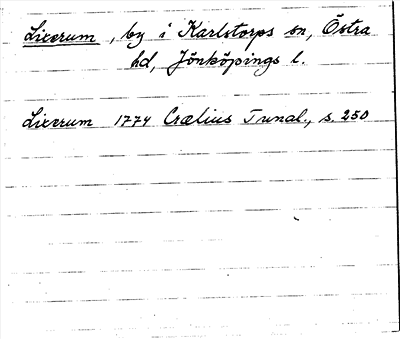 Lixerum, by i Karlstorps sn, Östra
hd, Jönköpings l.
Lixerum 1774 Crælius Tunal., s. 250